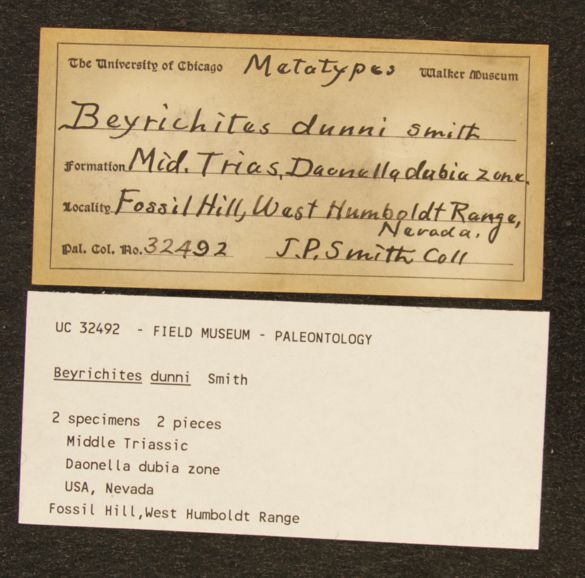 The University of Chicago Metatypes Walker Museum
Beyrichites dunni Smith
Formation Mid. Trias, Daonella dubia zone.
Locality Fossil Hill, West Humboldt Range,
Nevada.
Pal. Col. No. 32492 J.P. Smith Coll
UC 32492 - FIELD MUSEUM - PALEONTOLOGY
Beyrichites dunni Smith
2 specimens 2 pieces
Middle Triassic
Daonella dubia zone
USA, Nevada
Fossil Hill,West Humboldt Range